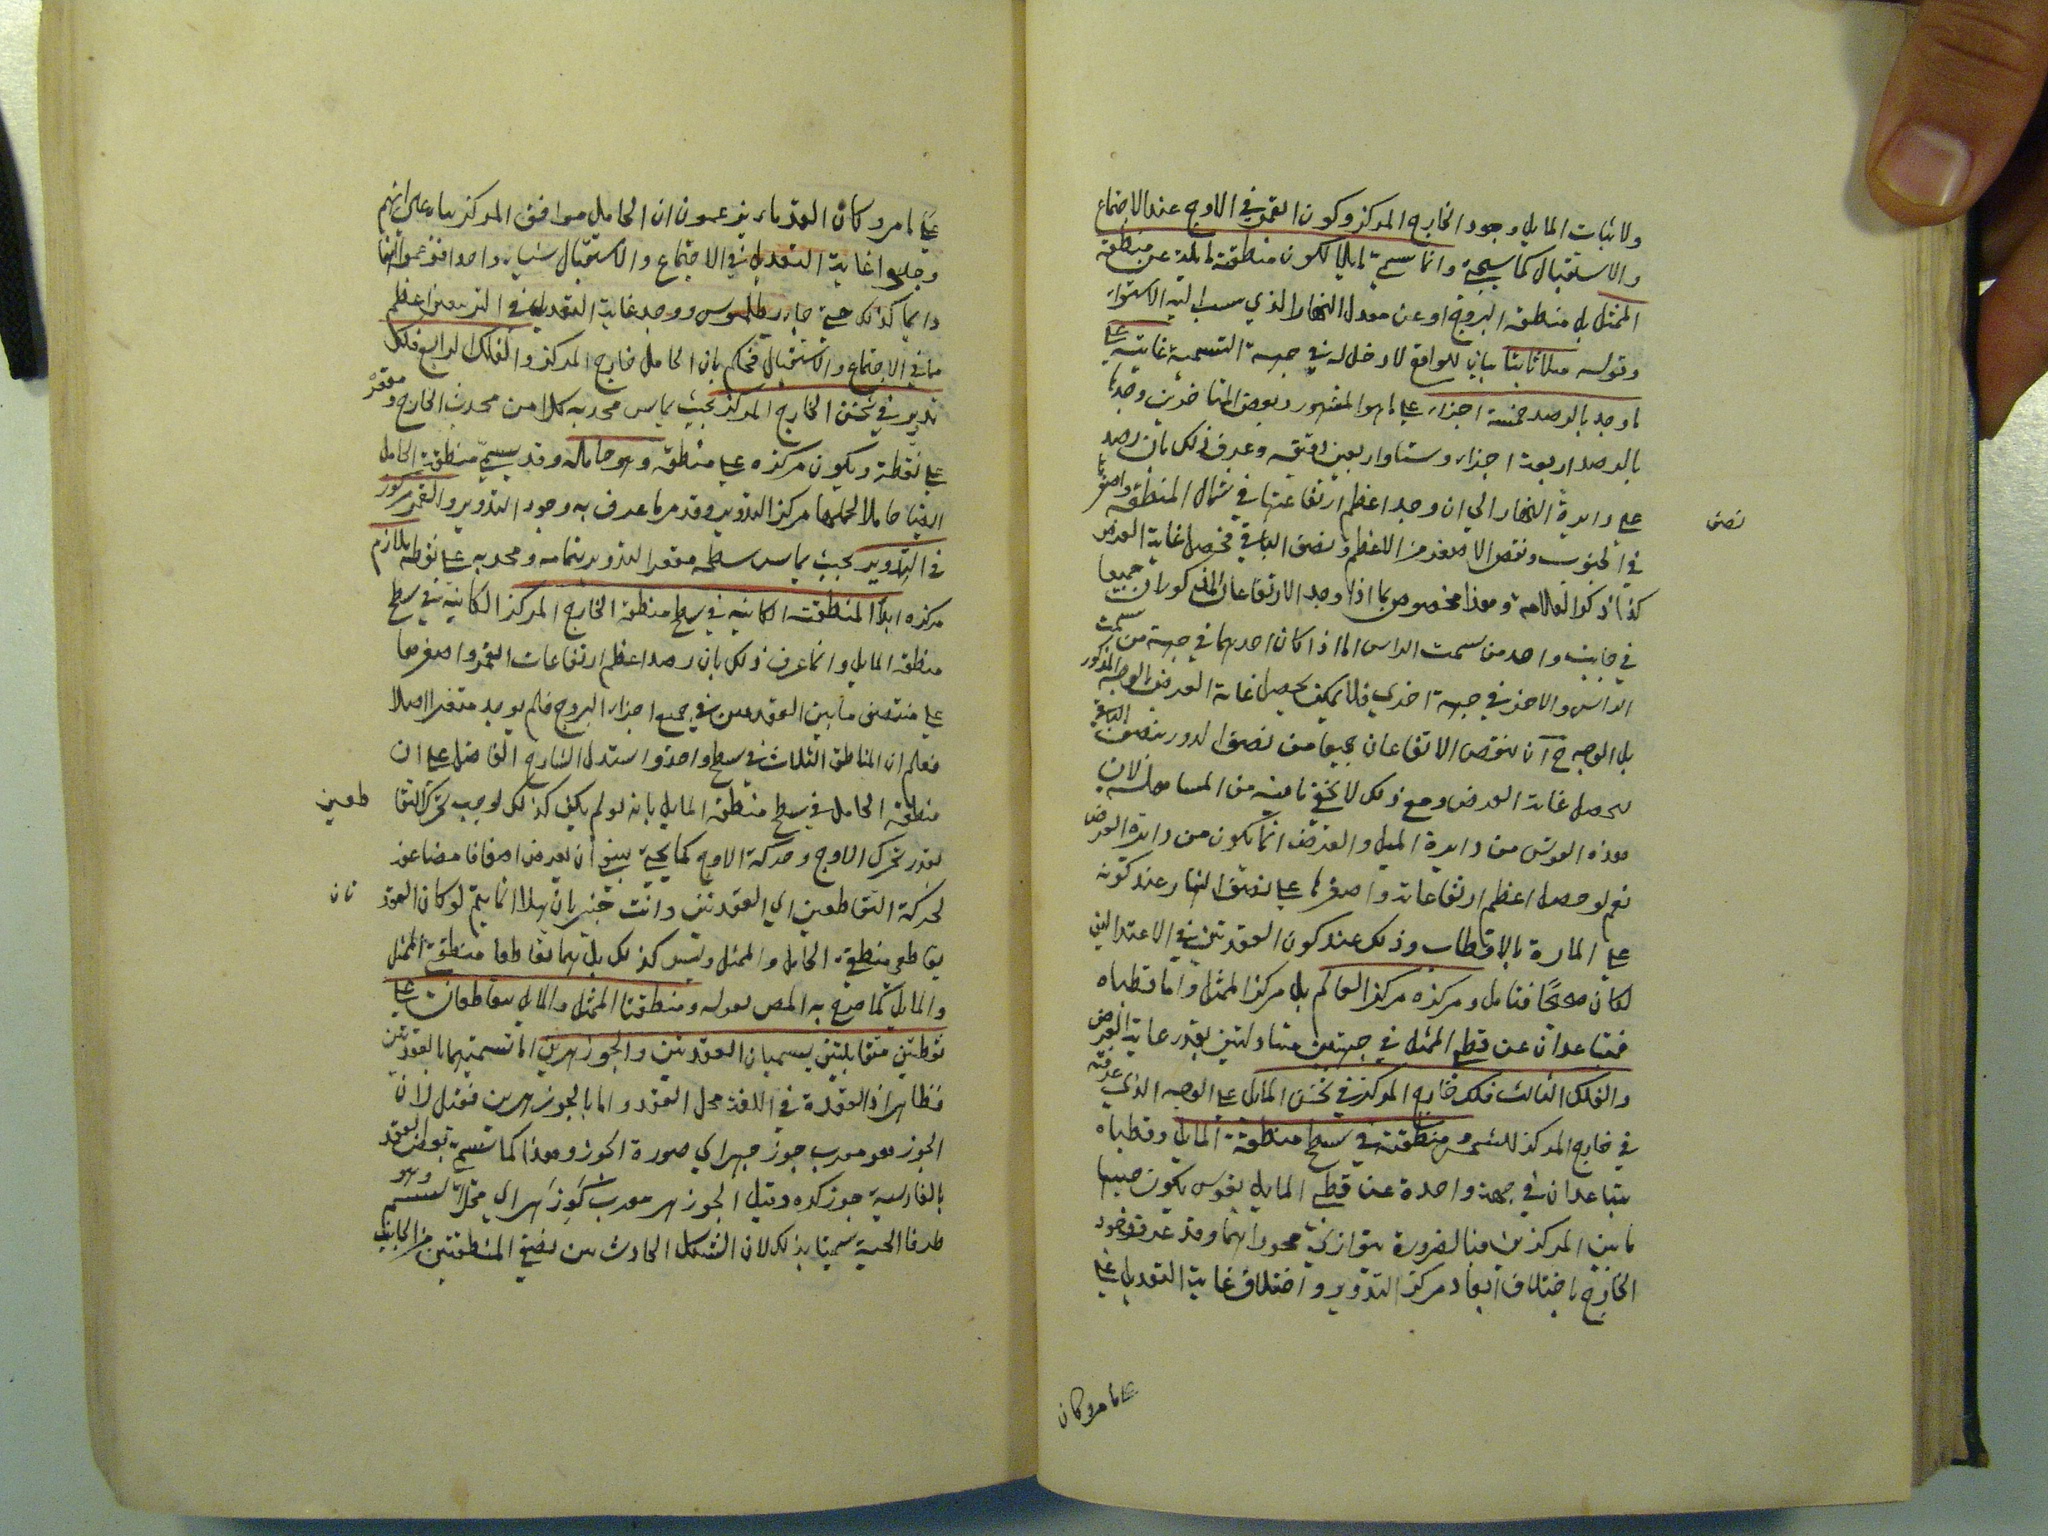 ولاثبات المايل وجود الخارج المركز وكون القمر في الاوج عند الاجتماع
والاستقبال كما سيجئ وانما سمي مايلا لكون منطقته مايلة عن منطقة
الممثل بل منطقة البروج او عن معدل النهار الذي ينسب اليه الاستواء
وقوله ميلا ثابتا بيان للواقع لا دخل له في جهة التسمية غايته على
ما وجد بالرصد خمسة اجزاء على ما هو المشهور وبعض المتاخرين وجدها
بالرصد اربعة اجزاء وستا واربعين دقيقه وعرف ذلك بان رصد
على دايرة النهار الي ان وجد اعظم ارتفاعتها في شمال المنطقة واصغرها
في الجنوب ونقص الاصغر من الاعظم ونصف الباقي فحصل غاية العرض
نصف
كذا ذكر العلامة وهذا مخصوص بما اذا وجد الارتفاعان المذكوران جميعا
في جانب واحد من سمت الراس اما اذا كان احدهما في جهة من سمت
الراس والاخر في جهة اخري فلا يمكن تحصيل غاية العرض بالوجه المذكور
بل الوجه ح ان ينقص الارتفاعان جميعا من نصف الدور ينصف الباقي
ليحصل غاية العرض ومع ذلك لا يخفي ما فيه من المساهلة لان
هذه القوس من دايرة الميل والعرض انما يكون من دائرة العرض
نعم لو حصل اعظم ارتفاعاته واصغرها على نصف النهار عند كونه
على المارة بالاقطاب وذلك عند كون العقدتين في الاعتدالين
لكان صحيحا فتامل ومركزه مركز العالم بل مركز الممثل واما قطباه
فمتباعدان عن قطبي الممثل في جهتين متبادلتين بقدر غاية العرض
والفلك الثالث فلك خارج المركز في ثخن المايل على الوجه الذي عرفته
في خارج المركز للشمس ومنطقته في سطح منطقة المايل وقطباه
يتباعدان في جهة واحدة عن قطبي المايل بقوس يكون جيبها
ما بين المركزين فبالضرورة يتوازي محوراهما وقد عرف وجود
الخارج باختلاف ابعاد مركز التدوير واختلاف غاية التعديل على
على ما مر وكان
على ما مر وكان القدماء يزعمون ان الحامل موافق المركز بناء على انهم
وجدوا غاية التعديل في الاجتماع والاستقبال شيئا واحدا فزعموا انها
دايما كذلك حتى جاء بطلميوس ووجد غاية التعديل في التربيعين اعظم
مما في الاجتماع والاستقبال فحكم بان الحامل خارج المركز والفلك الرابع فلك
تدوير في ثخن الخارج المركز بحيث يماس محدبه كلا من محدب الخارج ومقعره
على نقطة ويكون مركزه على منطقته وهو حامل له وقد يسمي منطقة الحامل
ايضا حاملا لحملها مركز التدوير وقد مر ما عرف به وجود التدوير والقمر مركوز
في التدوير بحيث يماس سطحه مقعر التدوير بتمامه ومحدبه على نقطة يلازم
مركزه ابدا المنطقة الكاينه في سطح منطقة الخارج المركز الكاينه في سطح
منطقة المايل وانما عرف ذلك بان رصد اعظم ارتفاعات القمر واصغرها
على منتصفي ما بين العقدتين في جميع اجزاء البروج فلم يوجد متغيرا اصلا
فعلم ان المناطق الثلاث في سطح واحد واستدل الشارح الفاضل على ان
منطقة الحامل في سطح منطقة المايل بانه لو لم يكن كذلك لوجب تحرك التقا
طعين
بقدر تحرك الاوج وحركة الاوج كما يجئ ينبغي ان يعرض اضعافا مضاعفة
لحركة التقاطعين اي العقدتين وانت خبير بان هذا انما يتم لو كان العقد
تان
تقاطعي منطقتي الحامل والممثل وليس كذلك بل هما تقاطعا منطقة الممثل
والمايل كما صرح به المص بقوله ومنطقتا الممثل والمايل يتقاطعان على
نقطتين متقابلتين يسميان العقدتين والجوزهرين اما تسميتهما بالعقدتين
فظاهر اذ العقدة في اللغة محل العقد واما بالجوزهرين فقيل لان
الجوزهر معرب جوزجهر اي صورة الجوز وهذا كما تسمي بعض العقد
بالفارسية جوزكره وقيل الجوزهر معرب كوزهر اي محل السم وهو
طرفا الحية سميتا بذلك لان الشكل الحادث بين نصفي المنطقتين من الجانبين